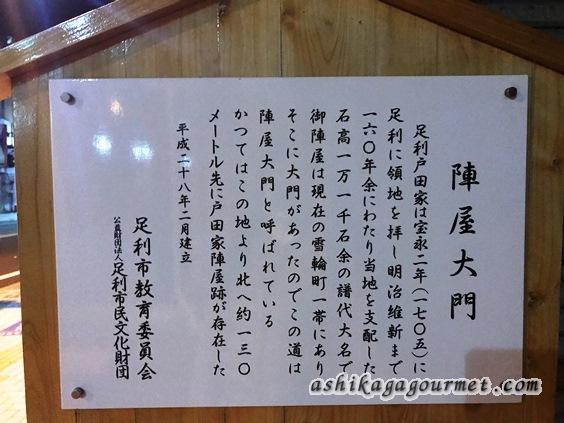 陣屋大門
足利戸田家は宝永二年(一七〇五)に
足利に領地を拝し明治維新まで
一六〇年余にわたり当地を支配した
石高一万一千石余の譜代大名で
御陣屋は現在の雪輪町一帯にあり
そこに大門があったのでこの道は
陣屋大門と呼ばれている
かつてはこの地より北へ約一三〇
メートル先に戸田家陣屋跡が存在した
平成二十八年二月建立
足利市教育委員会
公益財団法人足利市民文化財団
ashikagagourmet.com